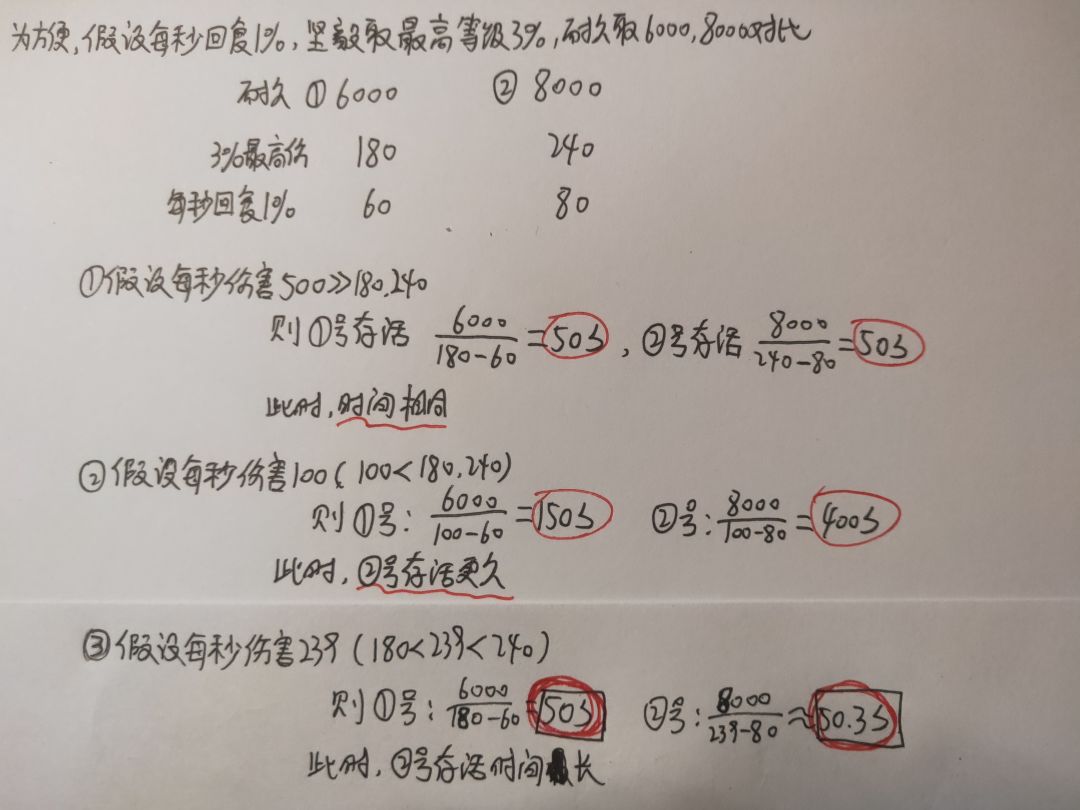 为方便,假设每秒回复1%,坚毅取最高等级3%,耐久取6000,8000对比
耐久 ①6000 ②8000
3%最高伤 180 240
每秒回复1% 60 80
①假设每秒伤害500≫180,240
则①号存活 6000/(180-60)=50s, ②号存活 8000/(240-80)=50s
此时,时间相同
②假设每秒伤害100(100<180,240)
则①号: 6000/(100-60)=150s ②号: 8000/(100-80)=400s
此时,②号存活更久
③假设每秒伤害239(180<239<240)
则①号: 6000/(180-60)=50s ②号: 8000/(239-80)≈50.3s
此时,②号存活时间长